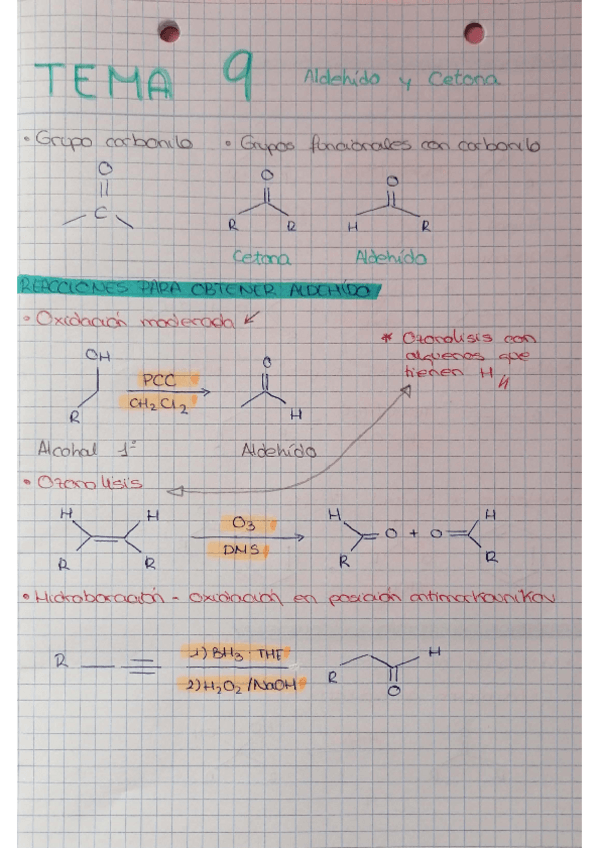 TEMA 9 Aldehído y Cetona
• Grupo carbonilo • Grupos funcionales con carbonilo
O
C
O
R R
O
H R
Cetona Aldehído
REACCIONES PARA OBTENER ALDEHÍDO
• Oxidación moderada
* Ozonolisis con
alquenos que
tienen H
OH
R
PCC
CH2Cl2
O
H
Alcohol 1º Aldehído
• Ozonolisis
H H
R R
O3
DMS
H
R
O + O
H
R
• Hidroboración - Oxidación en posición antimarkovnikov
R
1) BH3 · THF
2) H2O2 / NaOH
R
H
O